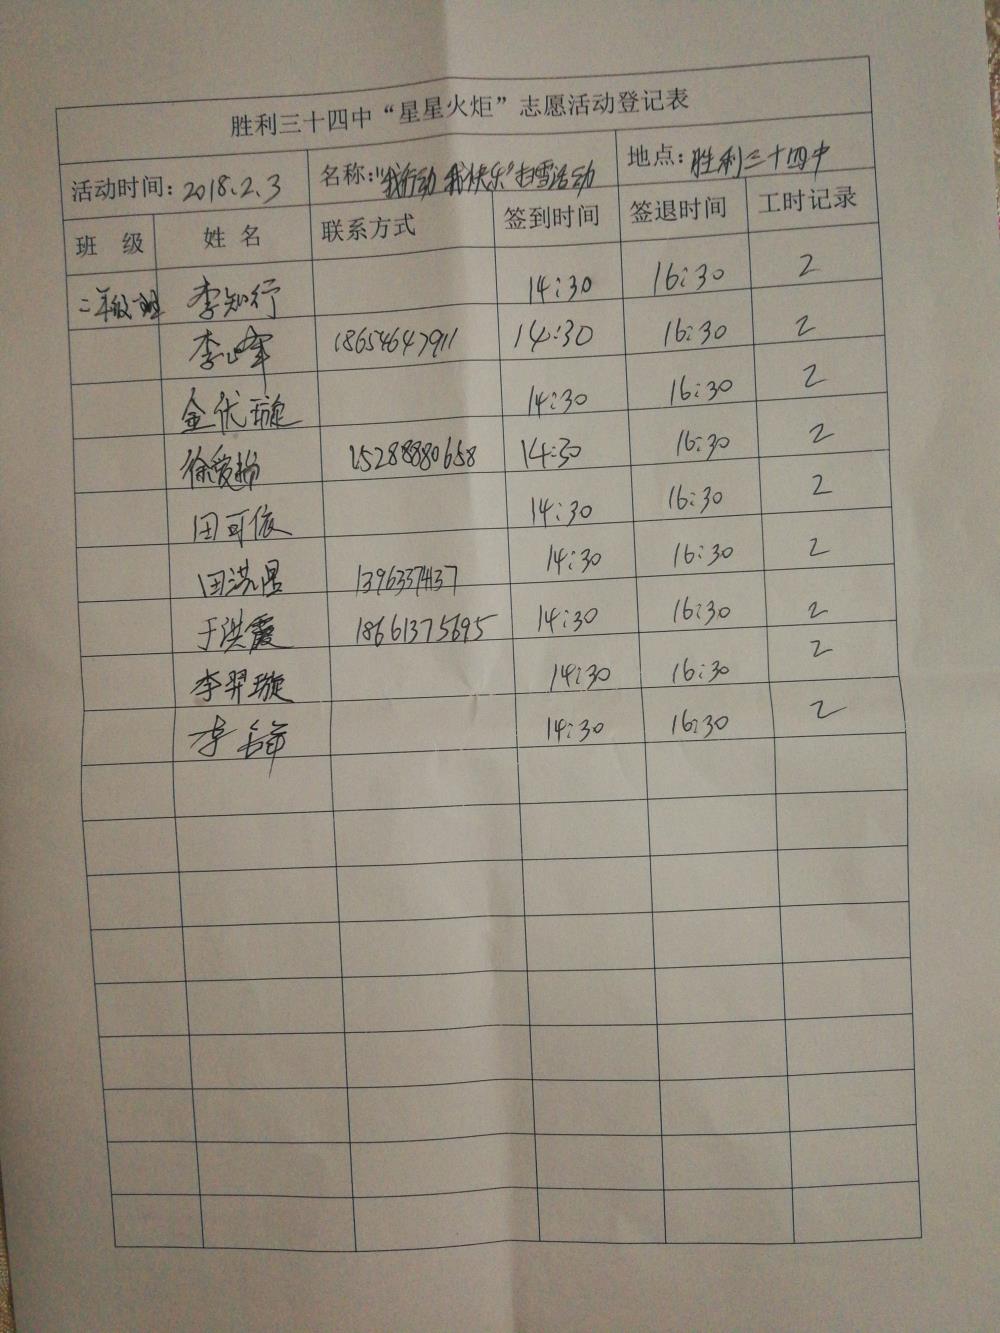 胜利三十四中“星星火炬”志愿活动登记表
活动时间：2018.2.3 名称：“我行动 我快乐”扫雪活动 地点：胜利三十四中
班 级 姓 名 联系方式 签到时间 签退时间 工时记录
二年级 班 李知行 14:30 16:30 2
李峰 18654647911 14:30 16:30 2
金优璇 14:30 16:30 2
徐爱 15288880658 14:30 16:30 2
田可依 14:30 16:30 2
田洪 1396337437 14:30 16:30 2
于洪霞 18661375695 14:30 16:30 2
李羿璇 14:30 16:30 2
李 14:30 16:30 2